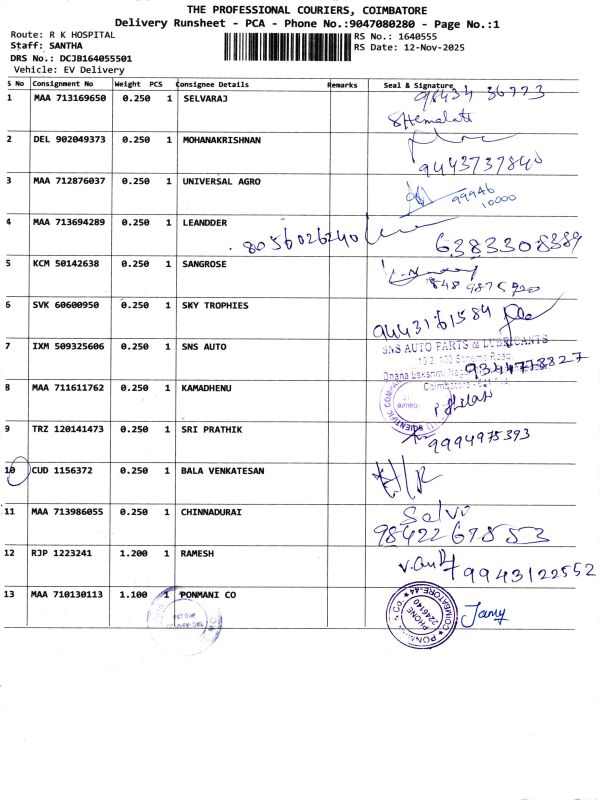 THE PROFESSIONAL COURIERS, COIMBATORE
Delivery Runsheet - PCA - Phone No.:9047080280 - Page No.:1
Route: R K HOSPITAL
Staff: SANTHA
DRS No.: DCJB164055501
Vehicle: EV Delivery
RS No.: 1640555
RS Date: 12-Nov-2025
S No Consignment No Weight PCS Consignee Details Remarks Seal & Signature
1 MAA 713169650 0.250 1 SELVARAJ 98434 36773
SHemalata
2 DEL 902049373 0.250 1 MOHANAKRISHNAN
9443737840
3 MAA 712876037 0.250 1 UNIVERSAL AGRO 99946
10000
4 MAA 713694289 0.250 1 LEANDDER
8056026240 6383308389
5 KCM 50142638 0.250 1 SANGROSE
6 SVK 60600950 0.250 1 SKY TROPHIES
9443161584
7 IXM 509325606 0.250 1 SNS AUTO SNS AUTO PARTS & LUBRICANTS
9344778827
Coimbatore
8 MAA 711611762 0.250 1 KAMADHENU
SCIENTIFIC COMPANY
9 TRZ 120141473 0.250 1 SRI PRATHIK 9994975393
10 CUD 1156372 0.250 1 BALA VENKATESAN
11 MAA 713986055 0.250 1 CHINNADURAI Selvi
9842267853
12 RJP 1223241 1.200 1 RAMESH
9943122552
13 MAA 710130113 1.100 1 PONMANI CO
PONMANI & CO. COIMBATORE-44
PHONE
2246140
Jamy